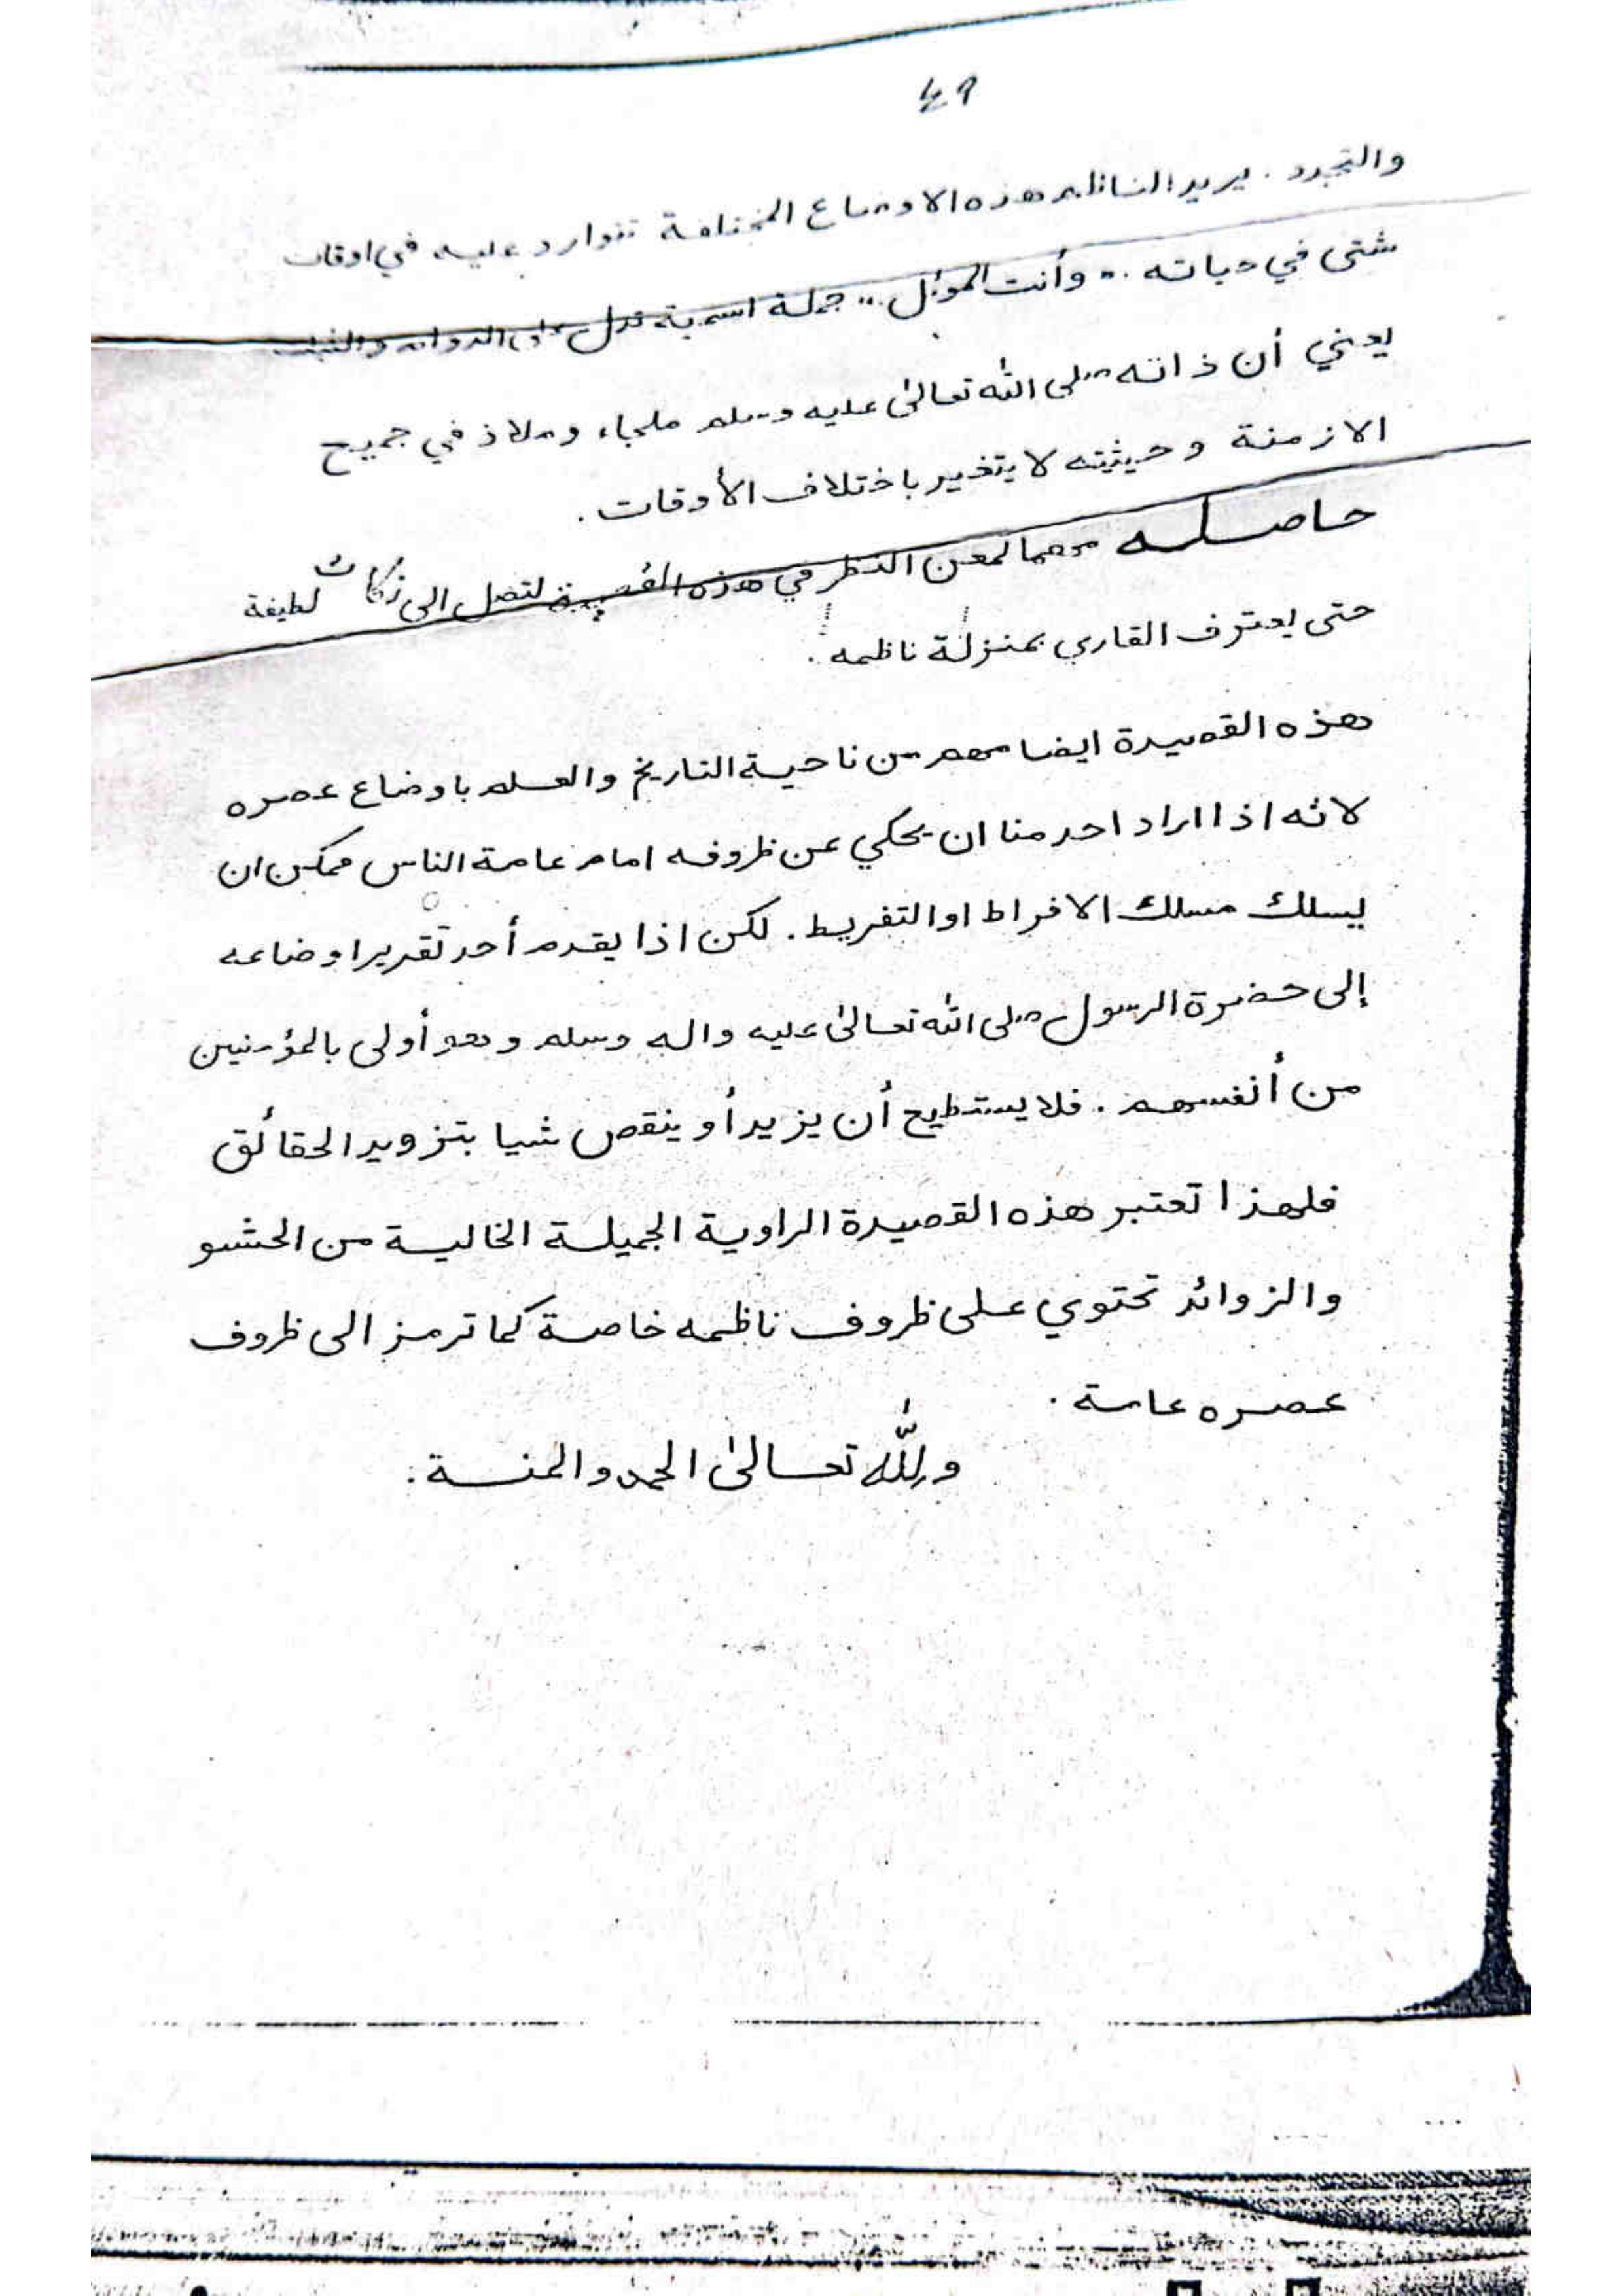 ٤٩
والتجدد . يريد الناظم هذه الاوضاع المختلفة تتوارد عليه في اوقات
شتى في حياته .. وأنت المؤمل .. جملة اسمية تدل على الدوام والثبات
يعني أن ذاته صلى الله تعالىٰ عليه وسلم ملجاء وملاذ في جميع
الازمنة وحيثيته لا يتغير باختلاف الأوقات .
حاصله مهما لمعن النظر في هذه القصيدة لتصل الى نكات لطيفة
حتى يعترف القاري بمنزلة ناظمه .
هذه القصيدة ايضا مهم من ناحية التاريخ والعلم باوضاع عصره
لانه اذا اراد احد منا ان يحكي عن ظروفه امام عامة الناس ممكن ان
يسلك مسلك الافراط او التفريط . لكن اذا يقدم أحد تقرير اوضاعه
إلى حضرة الرسول صلى الله تعالىٰ عليه واله وسلم وهو أولى بالمؤمنين
من أنفسهم . فلا يستطيع أن يزيد أو ينقص شيا بتزوير الحقائق
فلهذا تعتبر هذه القصيدة الراوية الجميلة الخالية من الحشو
والزوائد تحتوي على ظروف ناظمه خاصة كما ترمز الى ظروف
عصره عامة .
ولله تعالىٰ الحمد والمنة .